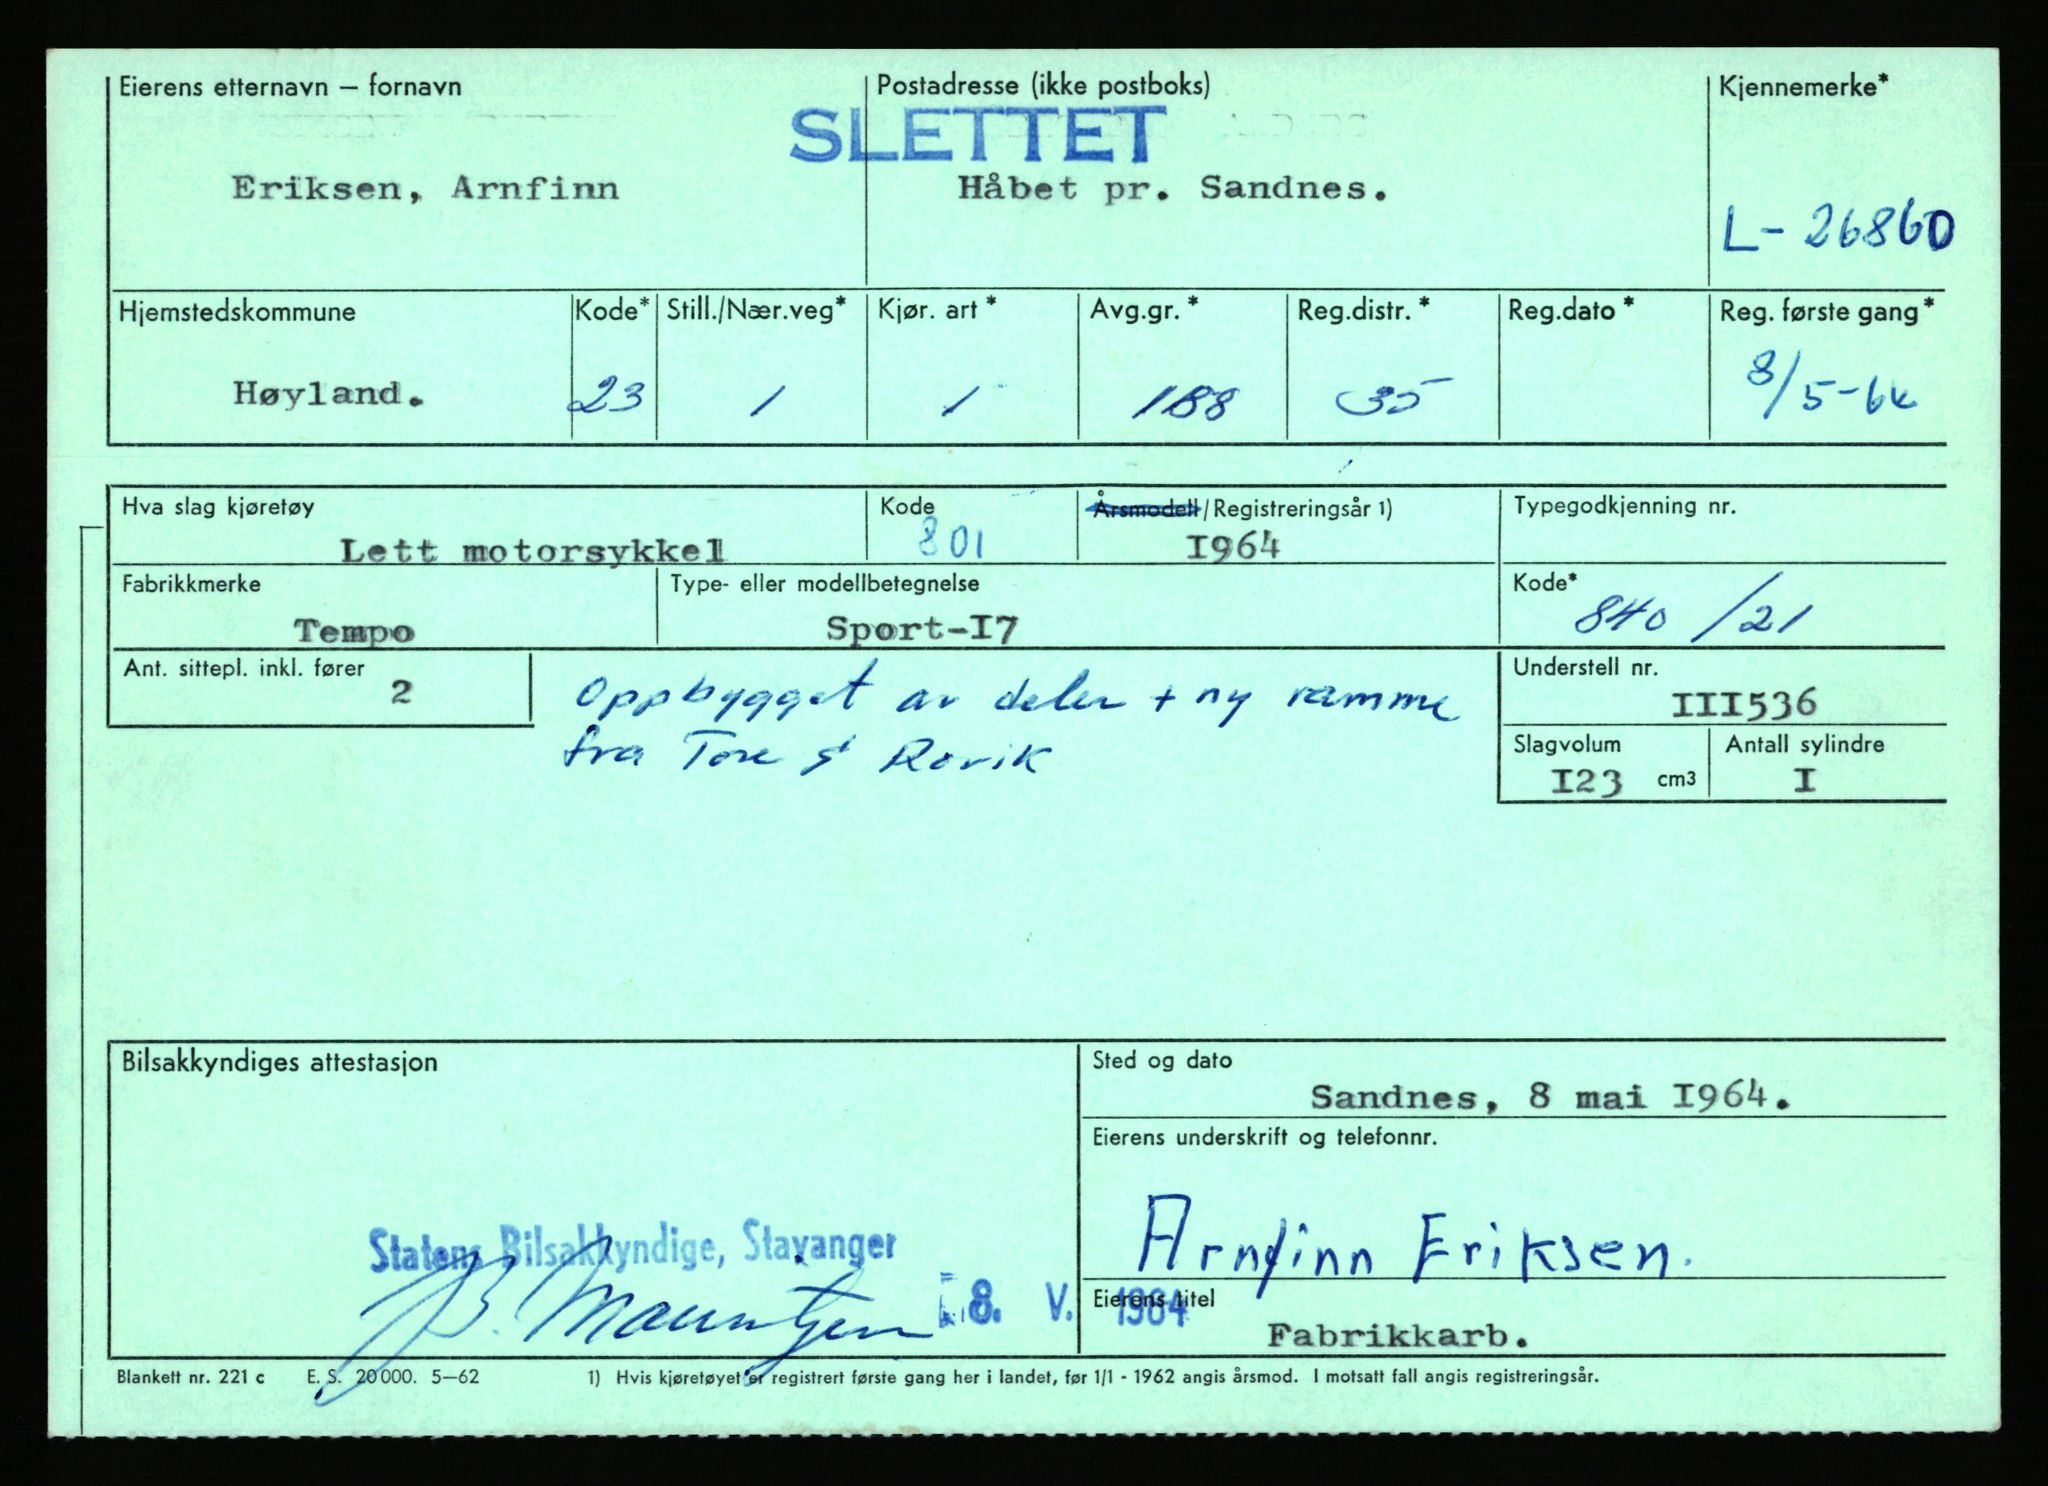 Eierens etternavn — fornavn
Postadresse (ikke postboks)
Kjennemerke*
SLETTET
Eriksen, Arnfinn
Håbet pr. Sandnes.
L-26860
Hjemstedskommune
Kode*
Still./Nær.veg*
Kjør. art*
Avg.gr.*
Reg.distr.*
Reg.dato*
Reg. første gang*
Høyland.
23
1
1
188
35
8/5-64
Hva slag kjøretøy
Kode
Årsmodell/Registreringsår 1)
Typegodkjenning nr.
Lett motorsykkel
801
I964
Fabrikkmerke
Type- eller modellbetegnelse
Kode*
Tempo
Sport-I7
840/21
Ant. sittepl. inkl. fører
2
Oppbygget av deler + ny ramme
fra Tore & Rovik
Understell nr.
III536
Slagvolum
Antall sylindre
I23 cm3
I
Bilsakkyndiges attestasjon
Sted og dato
Sandnes, 8 mai I964.
Eierens underskrift og telefonnr.
Arnfinn Eriksen.
Statens Bilsakkyndige, Stavanger
8. V. 1964
Eierens titel
Fabrikkarb.
Blankett nr. 221 c E. S. 20 000. 5—62
1) Hvis kjøretøyet er registrert første gang her i landet, før 1/1 - 1962 angis årsmod. I motsatt fall angis registreringsår.